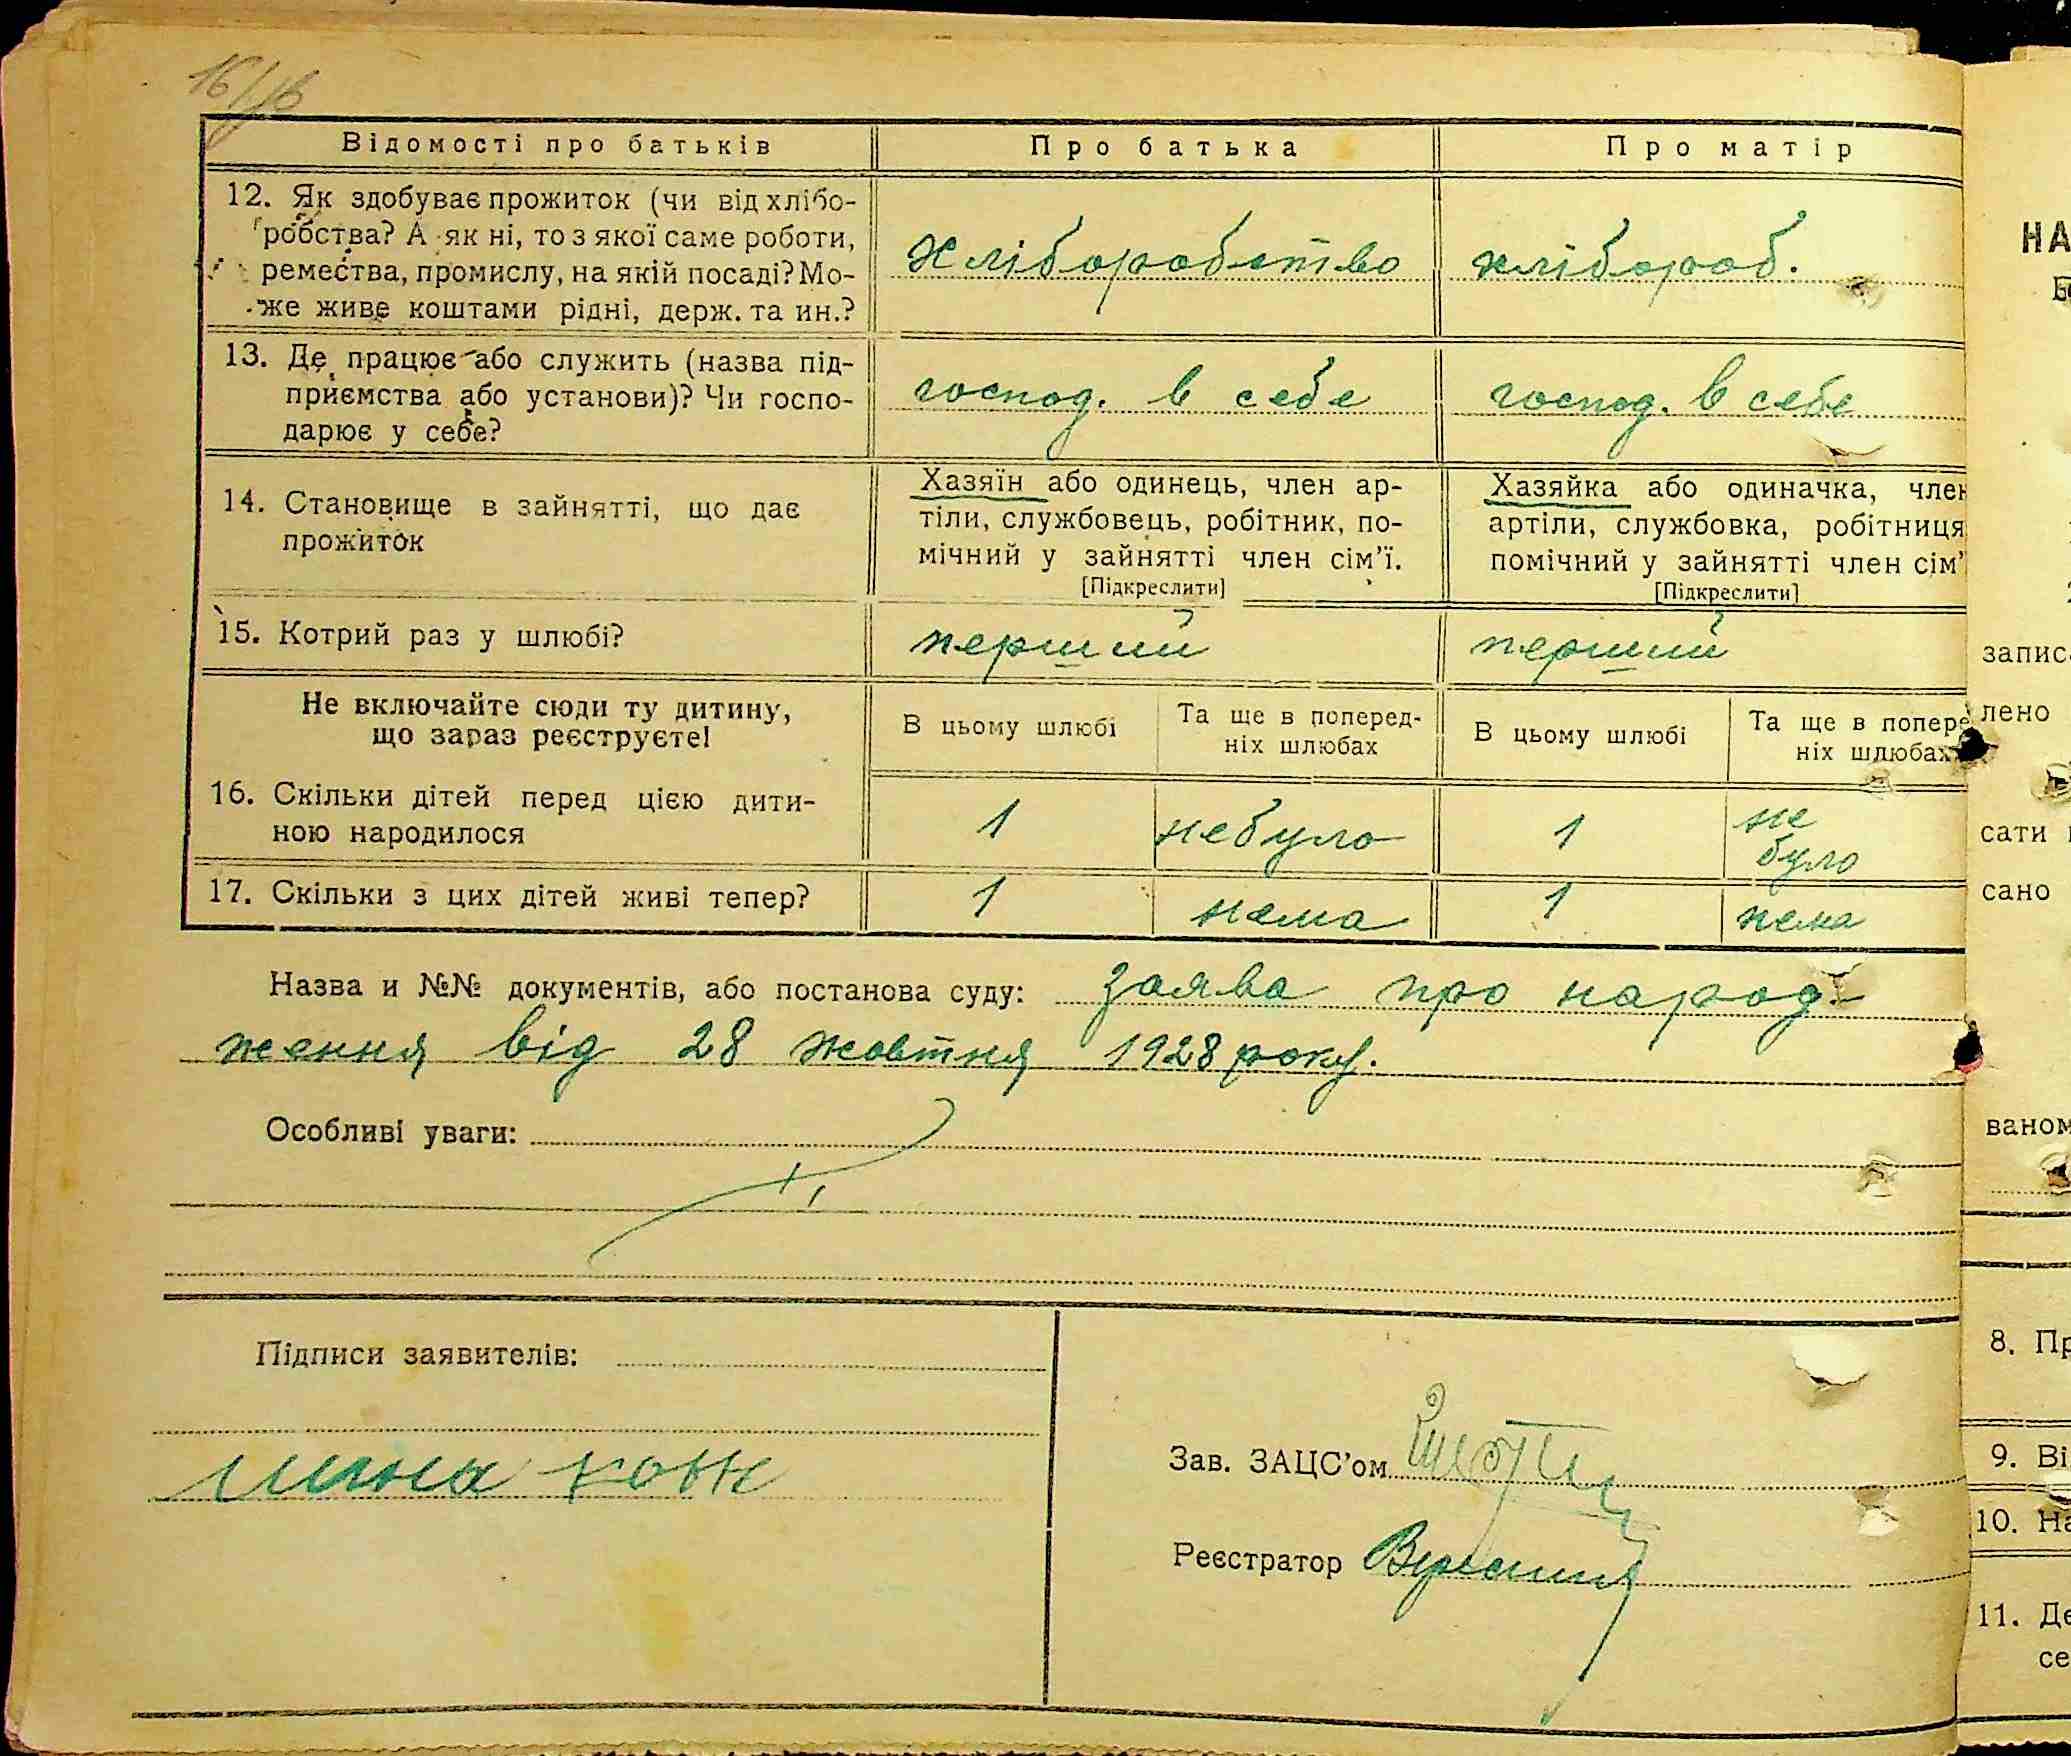 16/16
Відомості про батьків
Про батька
Про матір
12. Як здобуває прожиток (чи від хлібо-
робства? А як ні, то з якої саме роботи,
ремества, промислу, на якій посаді? Мо-
же живе коштами рідні, держ. та ин.?
хліборобство
хлібороб.
13. Де працює або служить (назва під-
приємства або установи)? Чи госпо-
дарює у себе?
господ. в себе
господ. в себе
14. Становище в зайнятті, що дає
прожиток
Хазяїн або одинець, член ар-
тіли, службовець, робітник, по-
мічний у зайнятті член сім'ї.
[Підкреслити]
Хазяйка або одиначка, член
артіли, службовка, робітниця
помічний у зайнятті член сім'
[Підкреслити]
15. Котрий раз у шлюбі?
перший
перший
Не включайте сюди ту дитину,
що зараз реєструєте!
В цьому шлюбі
Та ще в поперед-
ніх шлюбах
В цьому шлюбі
Та ще в попере
ніх шлюбах
16. Скільки дітей перед цією дити-
ною народилося
1
небуло
1
не
було
17. Скільки з цих дітей живі тепер?
1
нема
1
нема
Назва и №№ документів, або постанова суду: заява про народ-
ження від 28 жовтня 1928 року.
Особливі уваги:
Підписи заявителів:
Зав. ЗАЦС'ом
Реєстратор
НА
запис
лено
сати
сано
ваном
8. Пр
9. Ві
10. На
11. Де
се